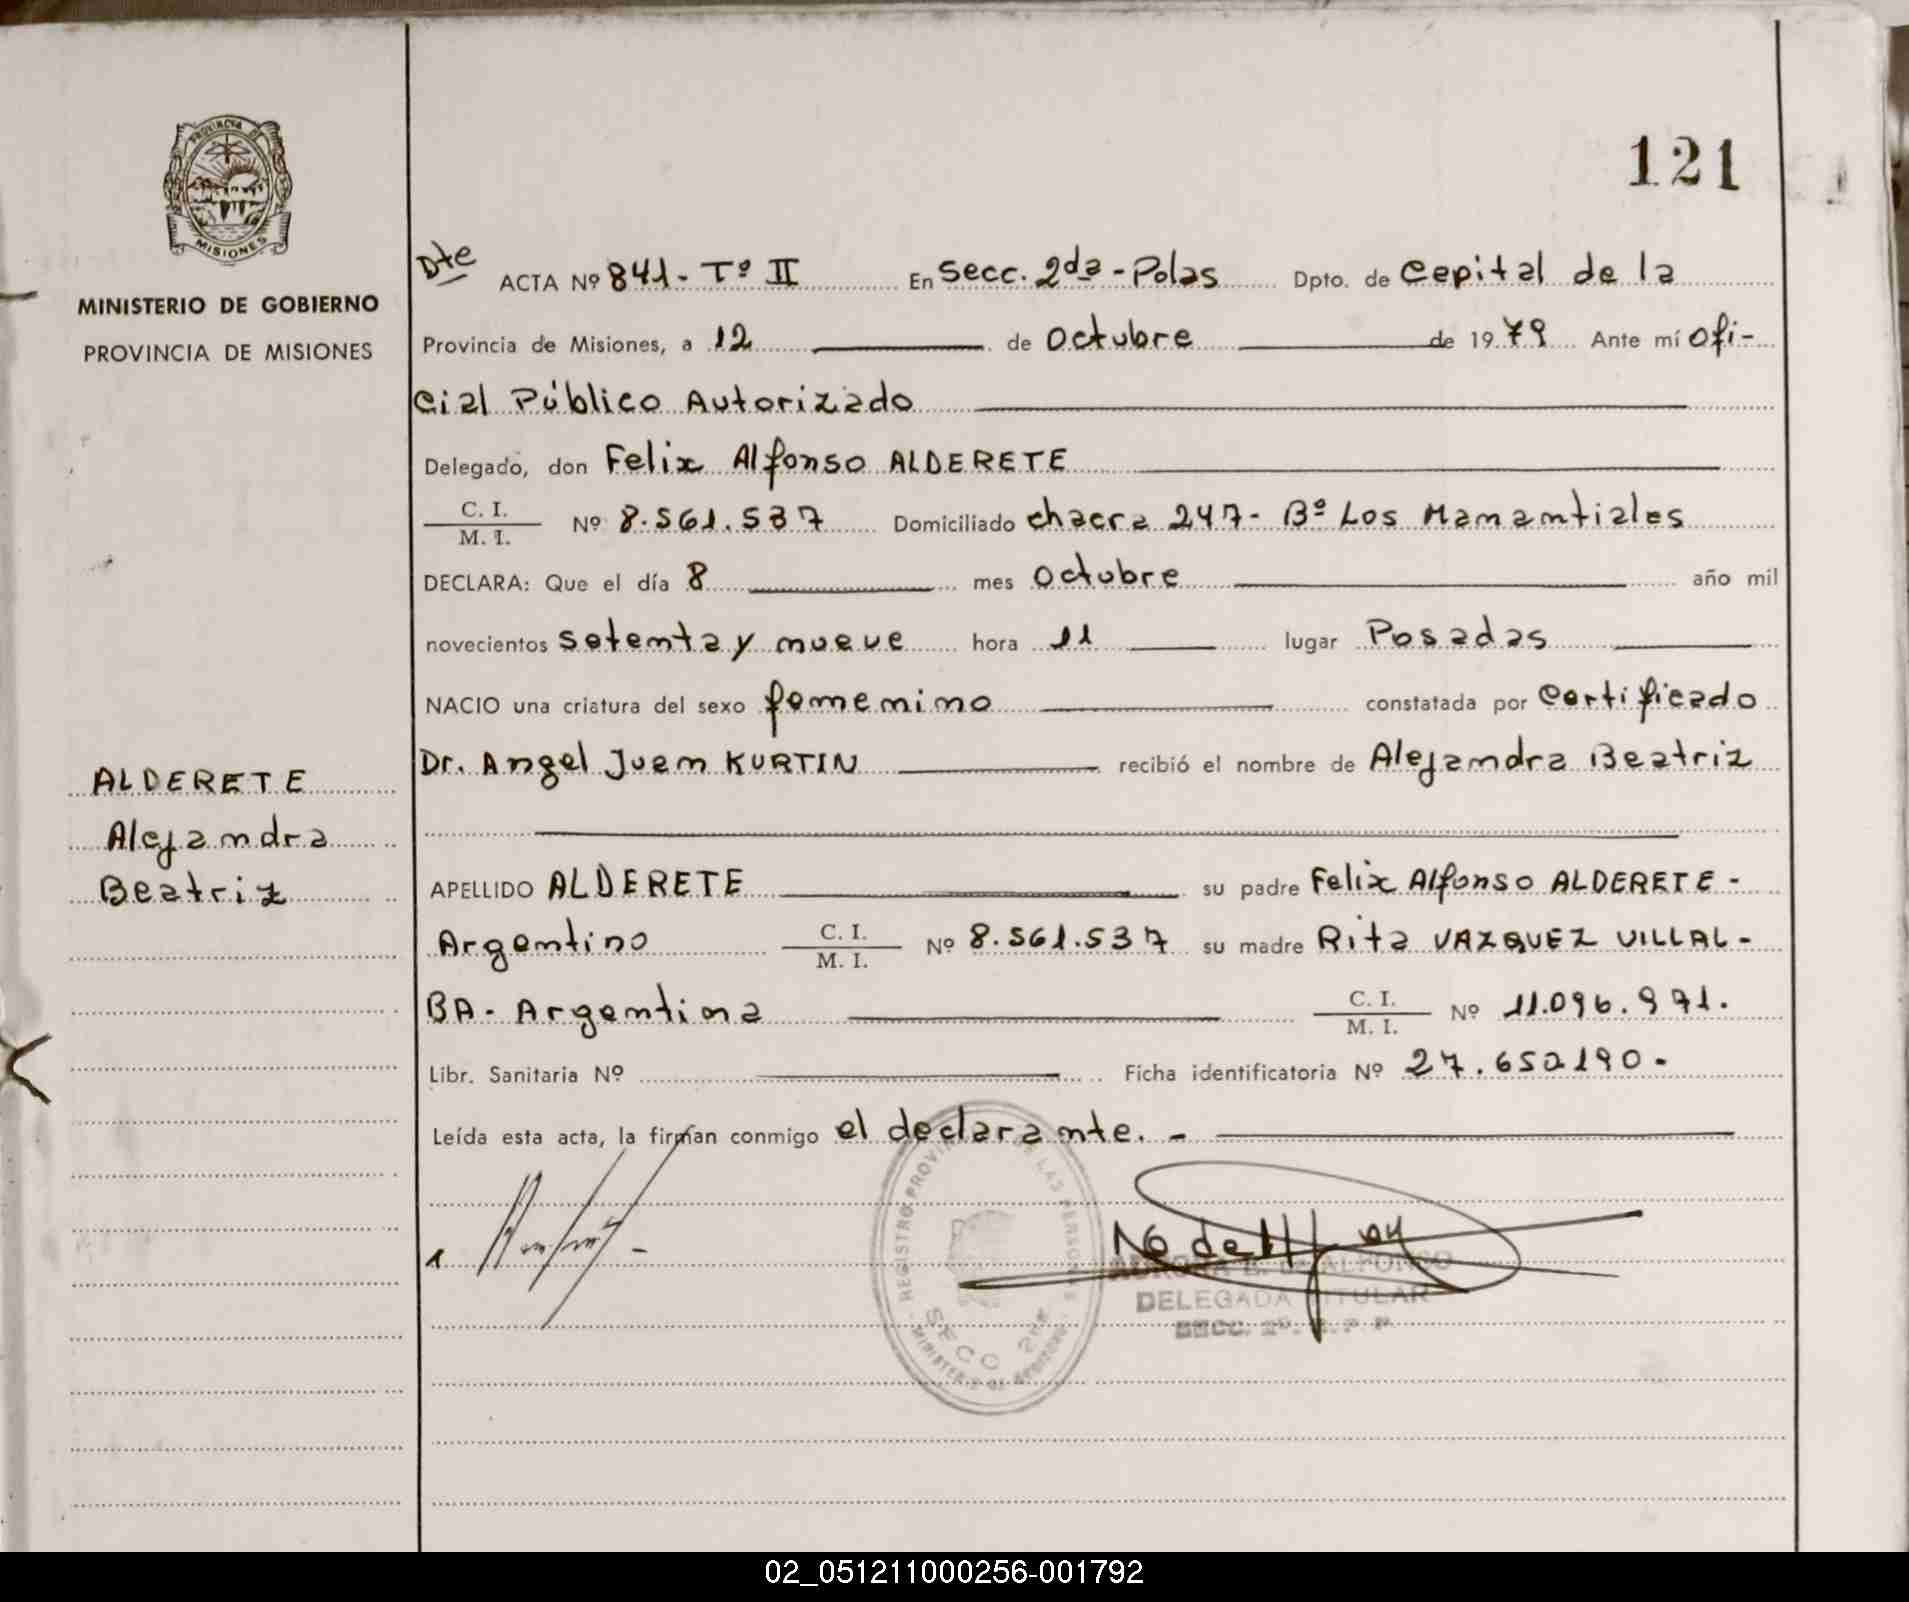 PROVINCIA DE
MISIONES
MINISTERIO DE GOBIERNO
PROVINCIA DE MISIONES
121
Dte ACTA Nº 841 - Tº II En Secc. 2da - Pdas Dpto. de Capital de la
Provincia de Misiones, a 12 de Octubre de 1979 Ante mí Ofi-
cial Público Autorizado
Delegado, don Felix Alfonso ALDERETE
C. I.
M. I. Nº 8.561.537 Domiciliado chacra 247 - Bº Los Manantiales
DECLARA: Que el día 8 mes Octubre año mil
novecientos setenta y nueve hora 11 lugar Posadas
NACIO una criatura del sexo femenino constatada por Certificado
Dr. Angel Juan KURTIN recibió el nombre de Alejandra Beatriz
ALDERETE
Alejandra
Beatriz
APELLIDO ALDERETE su padre Felix Alfonso ALDERETE -
Argentino C. I.
M. I. Nº 8.561.537 su madre Rita VAZQUEZ VILLAL-
BA - Argentina C. I.
M. I. Nº 11.096.971.
Libr. Sanitaria Nº Ficha identificatoria Nº 27.650190 -
Leída esta acta, la firman conmigo el declarante. -
REGISTRO PROVINCIAL DE LAS PERSONAS
SECC 2da
MINISTERIO DE GOBIERNO
DE ALFONSO
DELEGADA TITULAR
SECC. 2º. R. P. P.
02_051211000256-001792